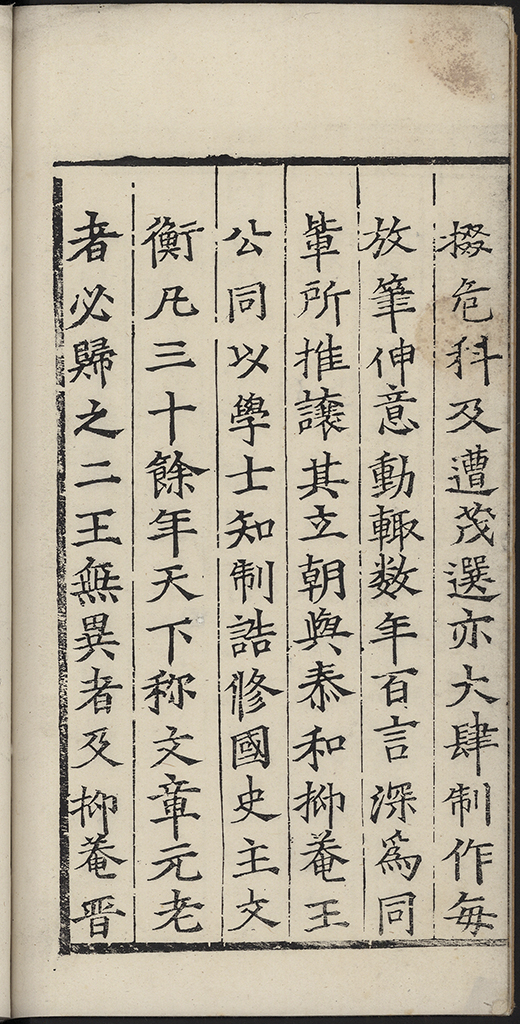 掇危科及遭茂選亦大肆制作每
放筆伸意動輙数年百言深爲同
軰所推讓其立朝與泰和抑菴王
公同以學士知制誥修國史主文
衡凡三十餘年天下称文章元老
者必歸之二王無異者及抑菴晋